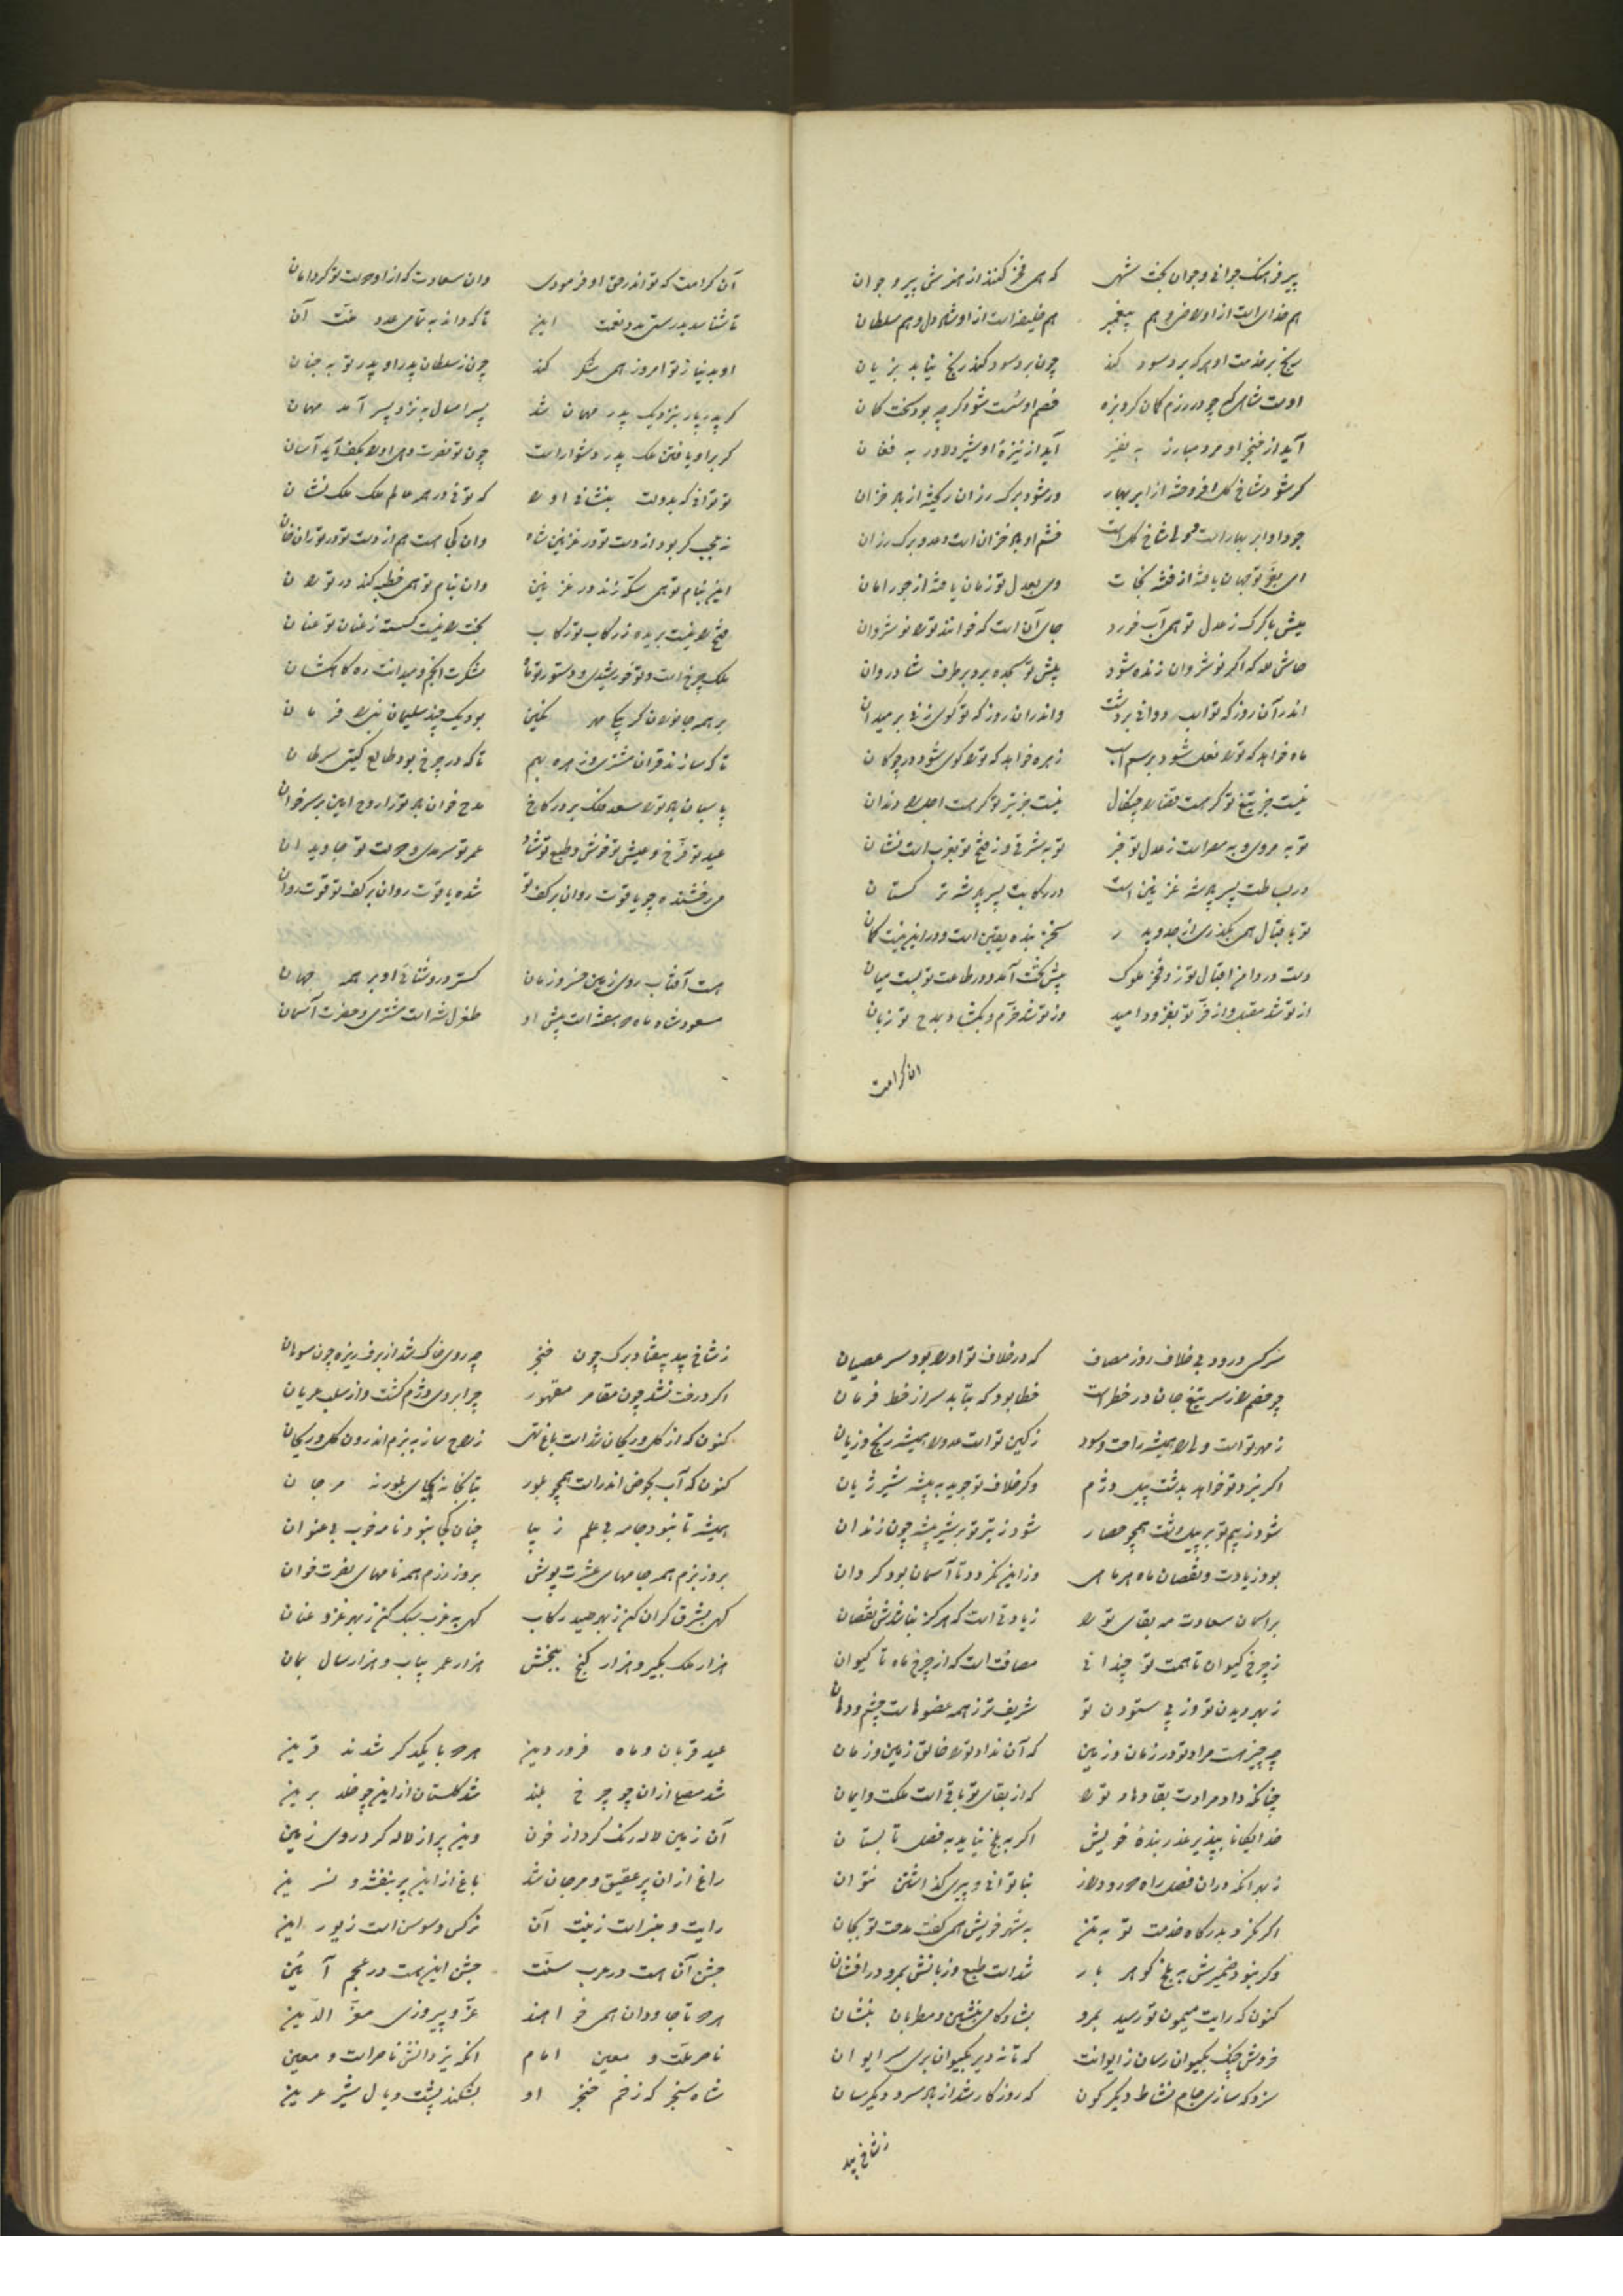 پیر فرهنگ جوانی و جوان بخت شهی که همی فخر کنند از هنرش پیر و جوان
هم خدای است از او راضی و هم پیغمبر هم خلیفه است از او شاد دل و هم سلطان
رنج بر خدمت او هر که برد سود کند چون برد سود کند رنج نیابد بزیان
اوست شاهی که چو در رزم کمان کرد بزه خصم او سست شود گر چه بود سخت کمان
آید از خنجر او مرد مبارز به نفیر آید از نیزه او شیر دلاور به فغان
گر شود شاخ گل افروخته از ابر بهار ور شود برگ رزان ریخته از باد خزان
جود او ابر بهار است و ولی شاخ گل است خشم او باد خزان است و عدو برگ رزان
ای بعز تو جهان یافته از فتنه نجات وی بعدل تو زمان یافته از جور امان
میش با گرگ ز عدل تو همی آب خورد جای آن است که خوانند ترا نوشروان
حاش لله که اگر نوشروان زنده شود پیش تو سجده برد بر طرف شادروان
اندر آن روز که تو اسب دوانی بر دشت واندران روز که تو گوی زنی بر میدان
ماه خواهد که ترا نعل شود بر سم اسب زهره خواهد که ترا گوی شود در چوگان
نیست جز تیغ تو گر هست قضا را چنگال نیست جز تیر تو گر هست اجل را دندان
تو به مروی و به صرا است ز عدل تو خبر تو به شرقی و ز فتح تو بغرب است نشان
در بساطت پسر پادشه غزنین است در رکابت پسر پادشه ترکستان
تو باقبال همی بگذری از جد و پدر سخن بنده یقین است و در این نیست گمان
دست در دامن اقبال تو زد فخر ملوک پیش تخت آمد و در طاعت تو بست میان
از تو شد مقبل و از فر تو بفزود امید وز تو شد خرم و بگشاد بمدح تو زبان
ان کرامت
آن کرامت که تو اندر حق او فرمودی وان سعادت که از او دولت تو کرد امان
تا شناسد بدرستی عدد نعمت این تا که داند به تمامی عدد منت آن
او بدنیا ز تو امروز همی شکر کند چون ز سلطان پدر او پدر تو به جنان
گر پدر پار بنزدیک پدر مهمان شد پسر امسال به نزد پسر آمد مهمان
گر براو یافتن ملک پدر دشوار است چون تو نصرت دهی او را بکف آید آسان
تو توانی که بدولت بنشانی او را که توئی در همه عالم ملک ملک نشان
نه عجب گر بود از دست تو در غزنین شاه وان یکی هست هم از دست تو در توران خان
این بنام تو همی سکه زند در غزنین وان بنام تو همی خطبه کند در توران
فتح را نیست بریده ز رکاب تو رکاب بخت را نیست گسسته ز عنان تو عنان
ملک چرخ است و تو خورشیدی و دستور تو ماه لشکرت انجم و میدانت ره کاهکشان
بر همه جانوران گر بیکی مهر نگین بود یک چند سلیمان نبی را فرمان
تا که سازند قران مشتری و زهره بهم تا که در چرخ بود طالع گیتی سرطان
پاسبان باد ترا سعد فلک بر در کاخ مدح خوان باد ترا روح امین بر سر خوان
عید تو فرخ و عیش تو خوش و طبع تو شاد عمر تو سرمدی و دولت تو جاویدان
می رخشنده چو یاقوت روان بر کف تو شده یاقوت روان بر کف تو قوت روان
هست آفتاب روی زمین خسرو زمان گسترده روشنائی او بر همه جهان
مسعود شاه ماه دو هفته است پیش او طغرل شه است مشتری و حضرت آسمان
سرکسی درود بی خلاف روز مصاف که در خلاف تو او را بود سر عصیان
چو خصم را ز سر تیغ جان در خطر است خطا بود که بتابد سر از خط فرمان
ز مهر تو است ولی را همیشه راحت و سود ز کین تو است عدو را همیشه رنج و زیان
اگر نبرد تو خواهد بدشت پیل دژم وگر خلاف تو جوید به بیشه شیر ژیان
شود ز بیم تو بر پیل دشت همچو حصار شود ز تیر تو بر شیر بیشه چون زندان
بود زیادت و نقصان ماه هر ماهی وز این نگردد تا آسمان بود گردان
بر آسمان سعادت مه بقای ترا زیادتی است که هرگز نباشدش نقصان
ز چرخ کیوان تا همت تو چندانی مصافت است که از چرخ ماه تا کیوان
ز بهر دیدن تو وز پی ستودن تو شریف تر ز همه عضوهاست چشم و دهان
چه چیز هست مراد تو در زمان و زمین که آن نداد ترا خالق زمین و زمان
چنانکه داد مرادت بقا دهاد ترا که از بقای تو باقی است ملکت و ایمان
خدایگانا بپذیر عذر بنده خویش اگر به بلخ نیاید به فصل تابستان
ز بهر آنکه در ان فصل راه دور و دراز بناتوانی و پیری گذاشتن نتوان
اگر نکرد بدرگاه خدمت تو به تن به شهر خویش همی گفت مدحت تو بجان
وگر نبود ضمیرش به بلخ گوهر بار شد است طبع و زبانش بمرو در افشان
کنون که رایت میمون تو رسید بمرو بشادکامی بنشین و مطربان بنشان
خروش چنگ بکیوان رسان ز ایوانت که تا نه دیر بکیوان بری سر ایوان
سزد که سازی جام نشاط دیگر گون که روزگار شد از باد سرد دیگر سان
ز شاخ بید
ز شاخ بید بیفتاد برگ چون خنجر چه روی خاک شد از برف ریزه چون سوهان
اگر درخت نشد چون مقامر مقهور چرا بروی دژم گشت و از سلب عریان
کنون که از گل و ریحان شد است باغ تهی ز راح ساز به بزم اندرون گل و ریحان
کنون که آب بحوض اندر است همچو بلور بتابخانه بجای بلور نه مرجان
همیشه تا نبود جامه بی علم زیبا چنان کجا نبود نامه خوب بی عنوان
بروز بزم همه جامهای عشرت پوش بروز رزم همه نامهای نصرت خوان
گهی بشرق گران کن ز بهر صید رکاب گهی به غرب سبک کن ز بهر غزو عنان
هزار ملک بگیر و هزار گنج ببخش هزار عمر بیاب و هزار سال بمان
عید قربان و ماه فروردین هر دو با یکدگر شدند قرین
شد مصلا از ان چو چرخ بلند شد گلستان از این چو خلد برین
آن زمین لاله رنگ کرد از خون وین پر از لاله کرد روی زمین
راغ از ان پر عقیق و مرجان شد باغ از این پر بنفشه و نسرین
رایت و منبر است زینت آن نرگس و سوسن است زیور این
جشن آن هست در عرب سنت جشن این هست در عجم آئین
هر دو تا جاودان همی خواهند عز و پیروزی معز الدین
ناصر ملت و معین امام آنکه یزدانش ناصر است و معین
شاه سنجر که زخم خنجر او بشکند پشت و یال شیر عرین